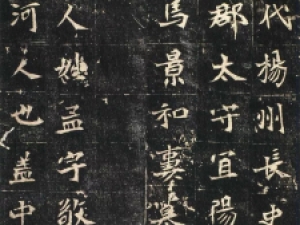 代楊州長史
郡太守宜陽
馬景和妻墓
人姓孟字敬
河人也盖中